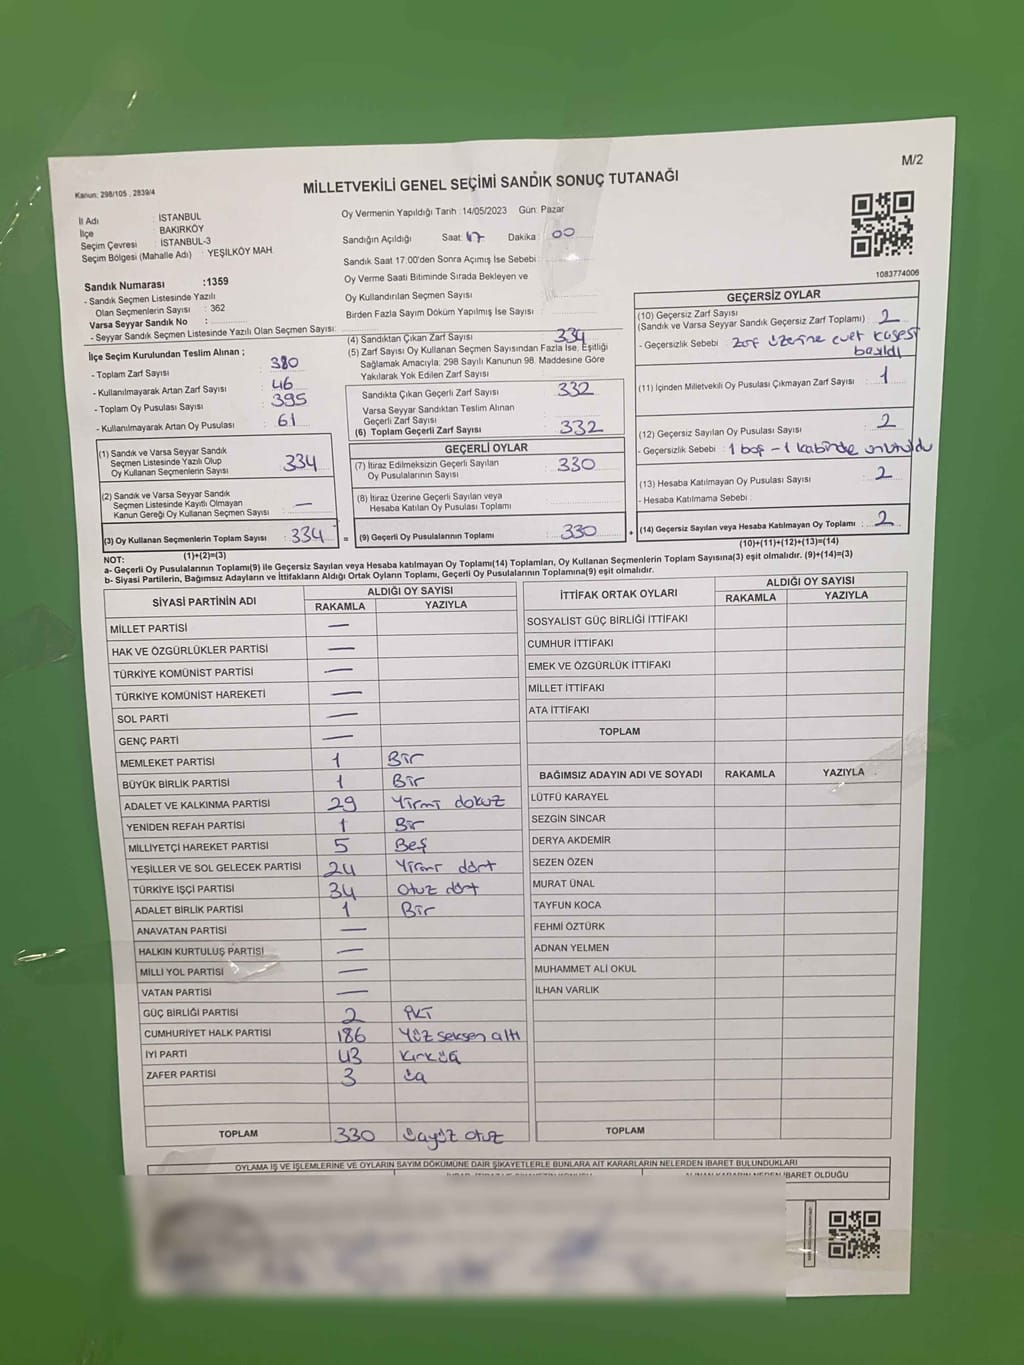 M/2
Kanun: 298/105 , 2839/4
MİLLETVEKİLİ GENEL SEÇİMİ SANDIK SONUÇ TUTANAĞI
İl Adı : İSTANBUL
İlçe : BAKIRKÖY
Seçim Çevresi : İSTANBUL-3
Seçim Bölgesi (Mahalle Adı) : YEŞİLKÖY MAH.
Sandık Numarası :1359
- Sandık Seçmen Listesinde Yazılı
Olan Seçmenlerin Sayısı : 362
Varsa Seyyar Sandık No :
- Seyyar Sandık Seçmen Listesinde Yazılı Olan Seçmen Sayısı:
Oy Vermenin Yapıldığı Tarih :14/05/2023 Gün: Pazar
Sandığın Açıldığı Saat: 17 Dakika : 00
Sandık Saat 17:00'den Sonra Açımış İse Sebebi :
Oy Verme Saati Bitiminde Sırada Bekleyen ve
Oy Kullandırılan Seçmen Sayısı
Birden Fazla Sayım Döküm Yapılmış İse Sayısı :
1083774006
İlçe Seçim Kurulundan Teslim Alınan ;
- Toplam Zarf Sayısı : 380
- Kullanılmayarak Artan Zarf Sayısı : 46
- Toplam Oy Pusulası Sayısı : 395
- Kullanılmayarak Artan Oy Pusulası : 61
(1) Sandık ve Varsa Seyyar Sandık
Seçmen Listesinde Yazılı Olup
Oy Kullanan Seçmenlerin Sayısı : 334
(2) Sandık ve Varsa Seyyar Sandık
Seçmen Listesinde Kayıtlı Olmayan
Kanun Gereği Oy Kullanan Seçmen Sayısı : —
(3) Oy Kullanan Seçmenlerin Toplam Sayısı : 334
(1)+(2)=(3)
(4) Sandıktan Çıkan Zarf Sayısı : 334
(5) Zarf Sayısı Oy Kullanan Seçmen Sayısından Fazla İse, Eşitliği
Sağlamak Amacıyla, 298 Sayılı Kanunun 98. Maddesine Göre
Yakılarak Yok Edilen Zarf Sayısı
Sandıkta Çıkan Geçerli Zarf Sayısı : 332
Varsa Seyyar Sandıktan Teslim Alınan
Geçerli Zarf Sayısı :
(6) Toplam Geçerli Zarf Sayısı : 332
GEÇERLİ OYLAR
(7) İtiraz Edilmeksizin Geçerli Sayılan
Oy Pusulalarının Sayısı : 330
(8) İtiraz Üzerine Geçerli Sayılan veya
Hesaba Katılan Oy Pusulası Toplamı :
= (9) Geçerli Oy Pusulalarının Toplamı : 330 +
GEÇERSİZ OYLAR
(10) Geçersiz Zarf Sayısı
(Sandık ve Varsa Seyyar Sandık Geçersiz Zarf Toplamı) : 2
- Geçersizlik Sebebi : Zarf üzerine evet kaşesi
basıldı
(11) İçinden Milletvekili Oy Pusulası Çıkmayan Zarf Sayısı : 1
(12) Geçersiz Sayılan Oy Pusulası Sayısı : 2
- Geçersizlik Sebebi : 1 boş - 1 kabinde unutuldu
(13) Hesaba Katılmayan Oy Pusulası Sayısı : 2
- Hesaba Katılmama Sebebi :
(14) Geçersiz Sayılan veya Hesaba Katılmayan Oy Toplamı : 2
(10)+(11)+(12)+(13)=(14)
NOT:
a- Geçerli Oy Pusulalarının Toplamı(9) ile Geçersiz Sayılan veya Hesaba katılmayan Oy Toplamı(14) Toplamları, Oy Kullanan Seçmenlerin Toplam Sayısına(3) eşit olmalıdır. (9)+(14)=(3)
b- Siyasi Partilerin, Bağımsız Adayların ve İttifakların Aldığı Ortak Oyların Toplamı, Geçerli Oy Pusulalarının Toplamına(9) eşit olmalıdır.
SİYASİ PARTİNİN ADI ALDIĞI OY SAYISI
RAKAMLA YAZIYLA
MİLLET PARTİSİ —
HAK VE ÖZGÜRLÜKLER PARTİSİ —
TÜRKİYE KOMÜNİST PARTİSİ —
TÜRKİYE KOMÜNİST HAREKETİ —
SOL PARTİ —
GENÇ PARTİ —
MEMLEKET PARTİSİ 1 Bir
BÜYÜK BİRLİK PARTİSİ 1 Bir
ADALET VE KALKINMA PARTİSİ 29 Yirmi dokuz
YENİDEN REFAH PARTİSİ 1 Bir
MİLLİYETÇİ HAREKET PARTİSİ 5 Beş
YEŞİLLER VE SOL GELECEK PARTİSİ 24 Yirmi dört
TÜRKİYE İŞÇİ PARTİSİ 34 Otuz dört
ADALET BİRLİK PARTİSİ 1 Bir
ANAVATAN PARTİSİ —
HALKIN KURTULUŞ PARTİSİ —
MİLLİ YOL PARTİSİ —
VATAN PARTİSİ —
GÜÇ BİRLİĞİ PARTİSİ 2 İki
CUMHURİYET HALK PARTİSİ 186 Yüz seksen altı
İYİ PARTİ 43 Kırk üç
ZAFER PARTİSİ 3 üç
TOPLAM 330 üçyüz otuz
İTTİFAK ORTAK OYLARI ALDIĞI OY SAYISI
RAKAMLA YAZIYLA
SOSYALİST GÜÇ BİRLİĞİ İTTİFAKI
CUMHUR İTTİFAKI
EMEK VE ÖZGÜRLÜK İTTİFAKI
MİLLET İTTİFAKI
ATA İTTİFAKI
TOPLAM
BAĞIMSIZ ADAYIN ADI VE SOYADI RAKAMLA YAZIYLA
LÜTFÜ KARAYEL
SEZGİN SİNCAR
DERYA AKDEMİR
SEZEN ÖZEN
MURAT ÜNAL
TAYFUN KOCA
FEHMİ ÖZTÜRK
ADNAN YELMEN
MUHAMMET ALİ OKUL
İLHAN VARLIK
TOPLAM
OYLAMA İŞ VE İŞLEMLERİNE VE OYLARIN SAYIM DÖKÜMÜNE DAİR ŞİKAYETLERLE BUNLARA AİT KARARLARIN NELERDEN İBARET BULUNDUKLARI
İBARET OLDUĞU